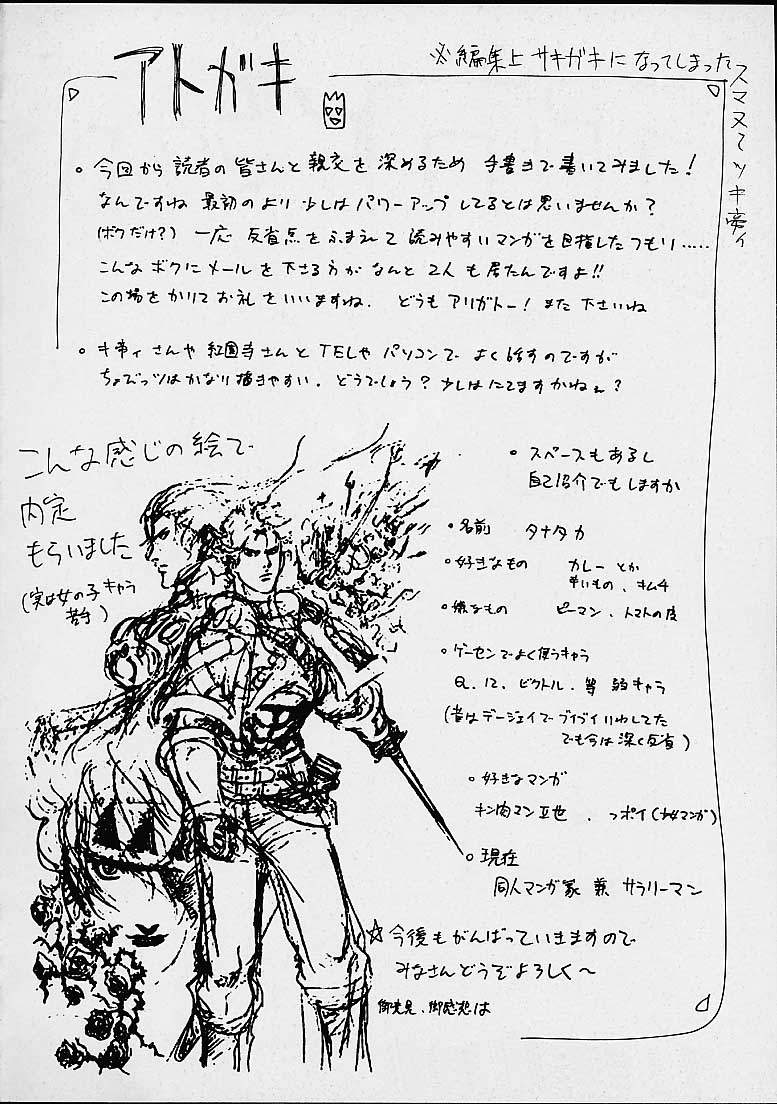 アトガキ
※編集上 サキガキに なってしまった
スマヌ
今回から 読者の 皆さんと 親交を 深めるため 手書きで 書いてみました!
なんですね 最初のより 少しは パワーアップ してるとは 思いませんか?
(ボクだけ?) 一応 反省点を ふまえて 読みやすい マンガを 目指した つもり.....
こんな ボクに メールを 下さる 方が なんと 2人も 居たんですよ!!
この場を かりて お礼を いいますね. どうも アリガトー! また 下さいね
さんや 紅円寺さんと TELや パソコンで よく 話すのですが
ちょびっツは かなり 描きやすい. どうでしょう? 少しは にてますかねぇ?
こんな感じの絵で
内定
もらいました
(実は女の子キャラ
苦手)
スペースもあるし
自己紹介でもしますか
名前 タナタカ
好きなもの カレーとか
辛いもの、キムチ
嫌なもの ピーマン、トマトの皮
ゲーセンでよく使うキャラ
Q. 12. ビクトル. 等 弱キャラ
(昔はデージェイで ブイブイいわしてた
でも今は 深く反省)
好きなマンガ
キン肉マンⅡ世 、っポイ(少女マンガ)
現在
同人マンガ家 兼 サラリーマン
☆今後もがんばっていきますので
みなさんどうぞよろしく〜
御意見、御感想は